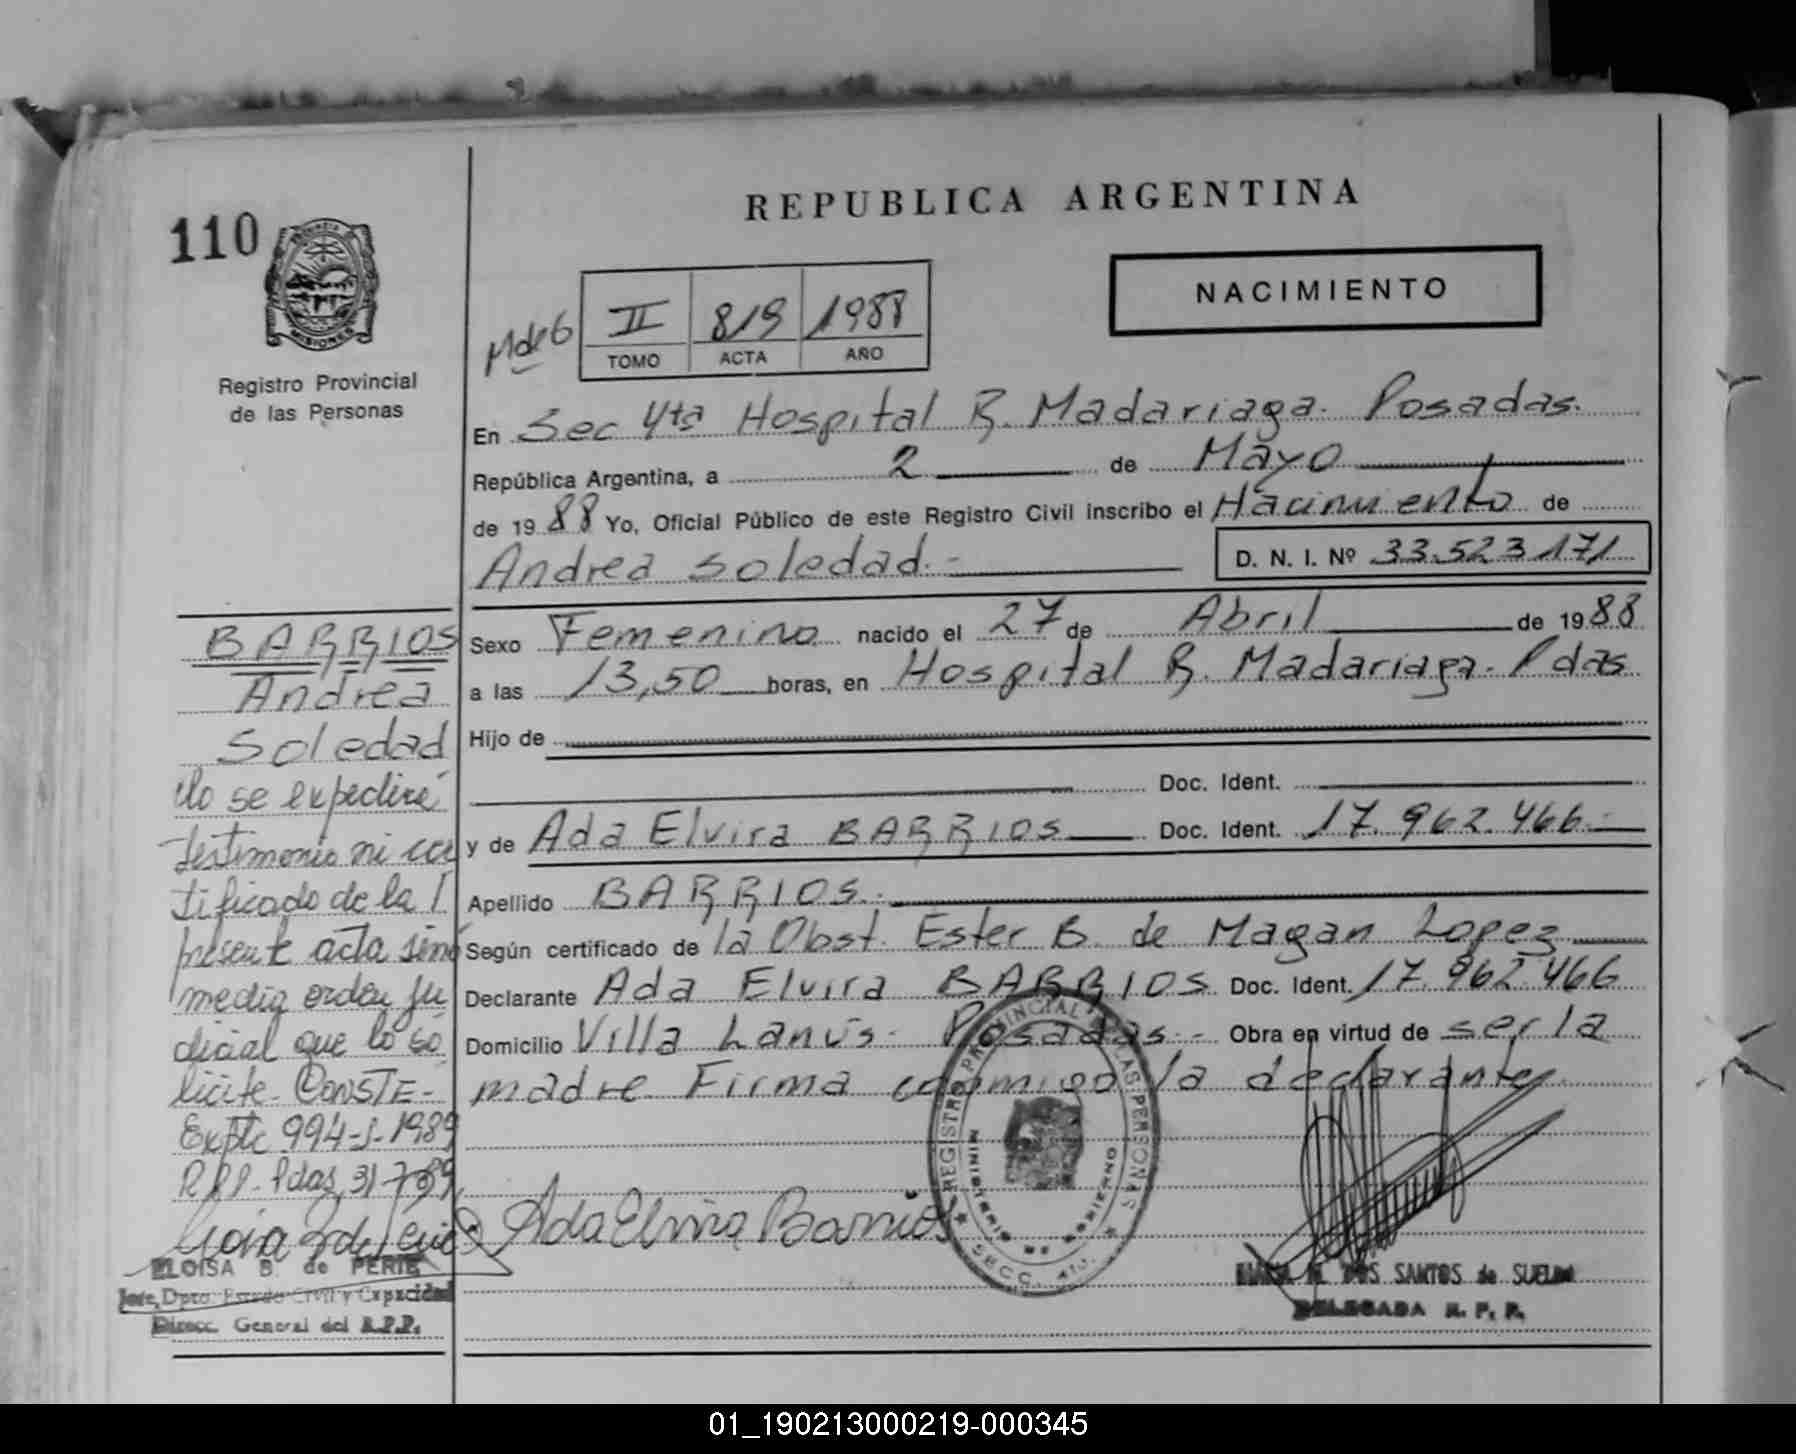 REPUBLICA ARGENTINA
110
MISIONES
Registro Provincial
de las Personas
NACIMIENTO
II 819 1988
TOMO ACTA AÑO
En Sec 4ta Hospital R. Madariaga. Posadas.
República Argentina, a 2 de Mayo
de 1988 Yo, Oficial Público de este Registro Civil inscribo el Nacimiento de
Andrea Soledad.-
D. N. I. Nº 33.523171
Sexo Femenino nacido el 27 de Abril de 1988
a las 13,50 horas, en Hospital R. Madariaga. Pdas
Hijo de
Doc. Ident.
y de Ada Elvira BARRIOS Doc. Ident. 17.962.466.-
Apellido BARRIOS.
Según certificado de la Obst. Ester B. de Magan Lopez
Declarante Ada Elvira BARRIOS Doc. Ident. 17.962.466
Domicilio Villa Lanús- Posadas.- Obra en virtud de ser la
madre. Firma conmigo la declarante.
BARRIOS
Andrea
Soledad
No se expedirá
testimonio ni cer
tificado de la
presente acta sino
media orden ju
dicial que lo so
licite. CONSTE-
Expte 994-J-1989
R.P.P.- Pdas, 31-7-89
ELOISA B. de PERIE
Jefe, Dpto. Estado Civil y Capacidad
Direcc. General del R.P.P.
Ada Elvira Barrios
REGISTRO PROVINCIAL DE LAS PERSONAS
MINISTERIO DE GOBIERNO
SECC. 4TA.
DOS SANTOS de SUELDO
DELEGADA R. P. P.
01_190213000219-000345